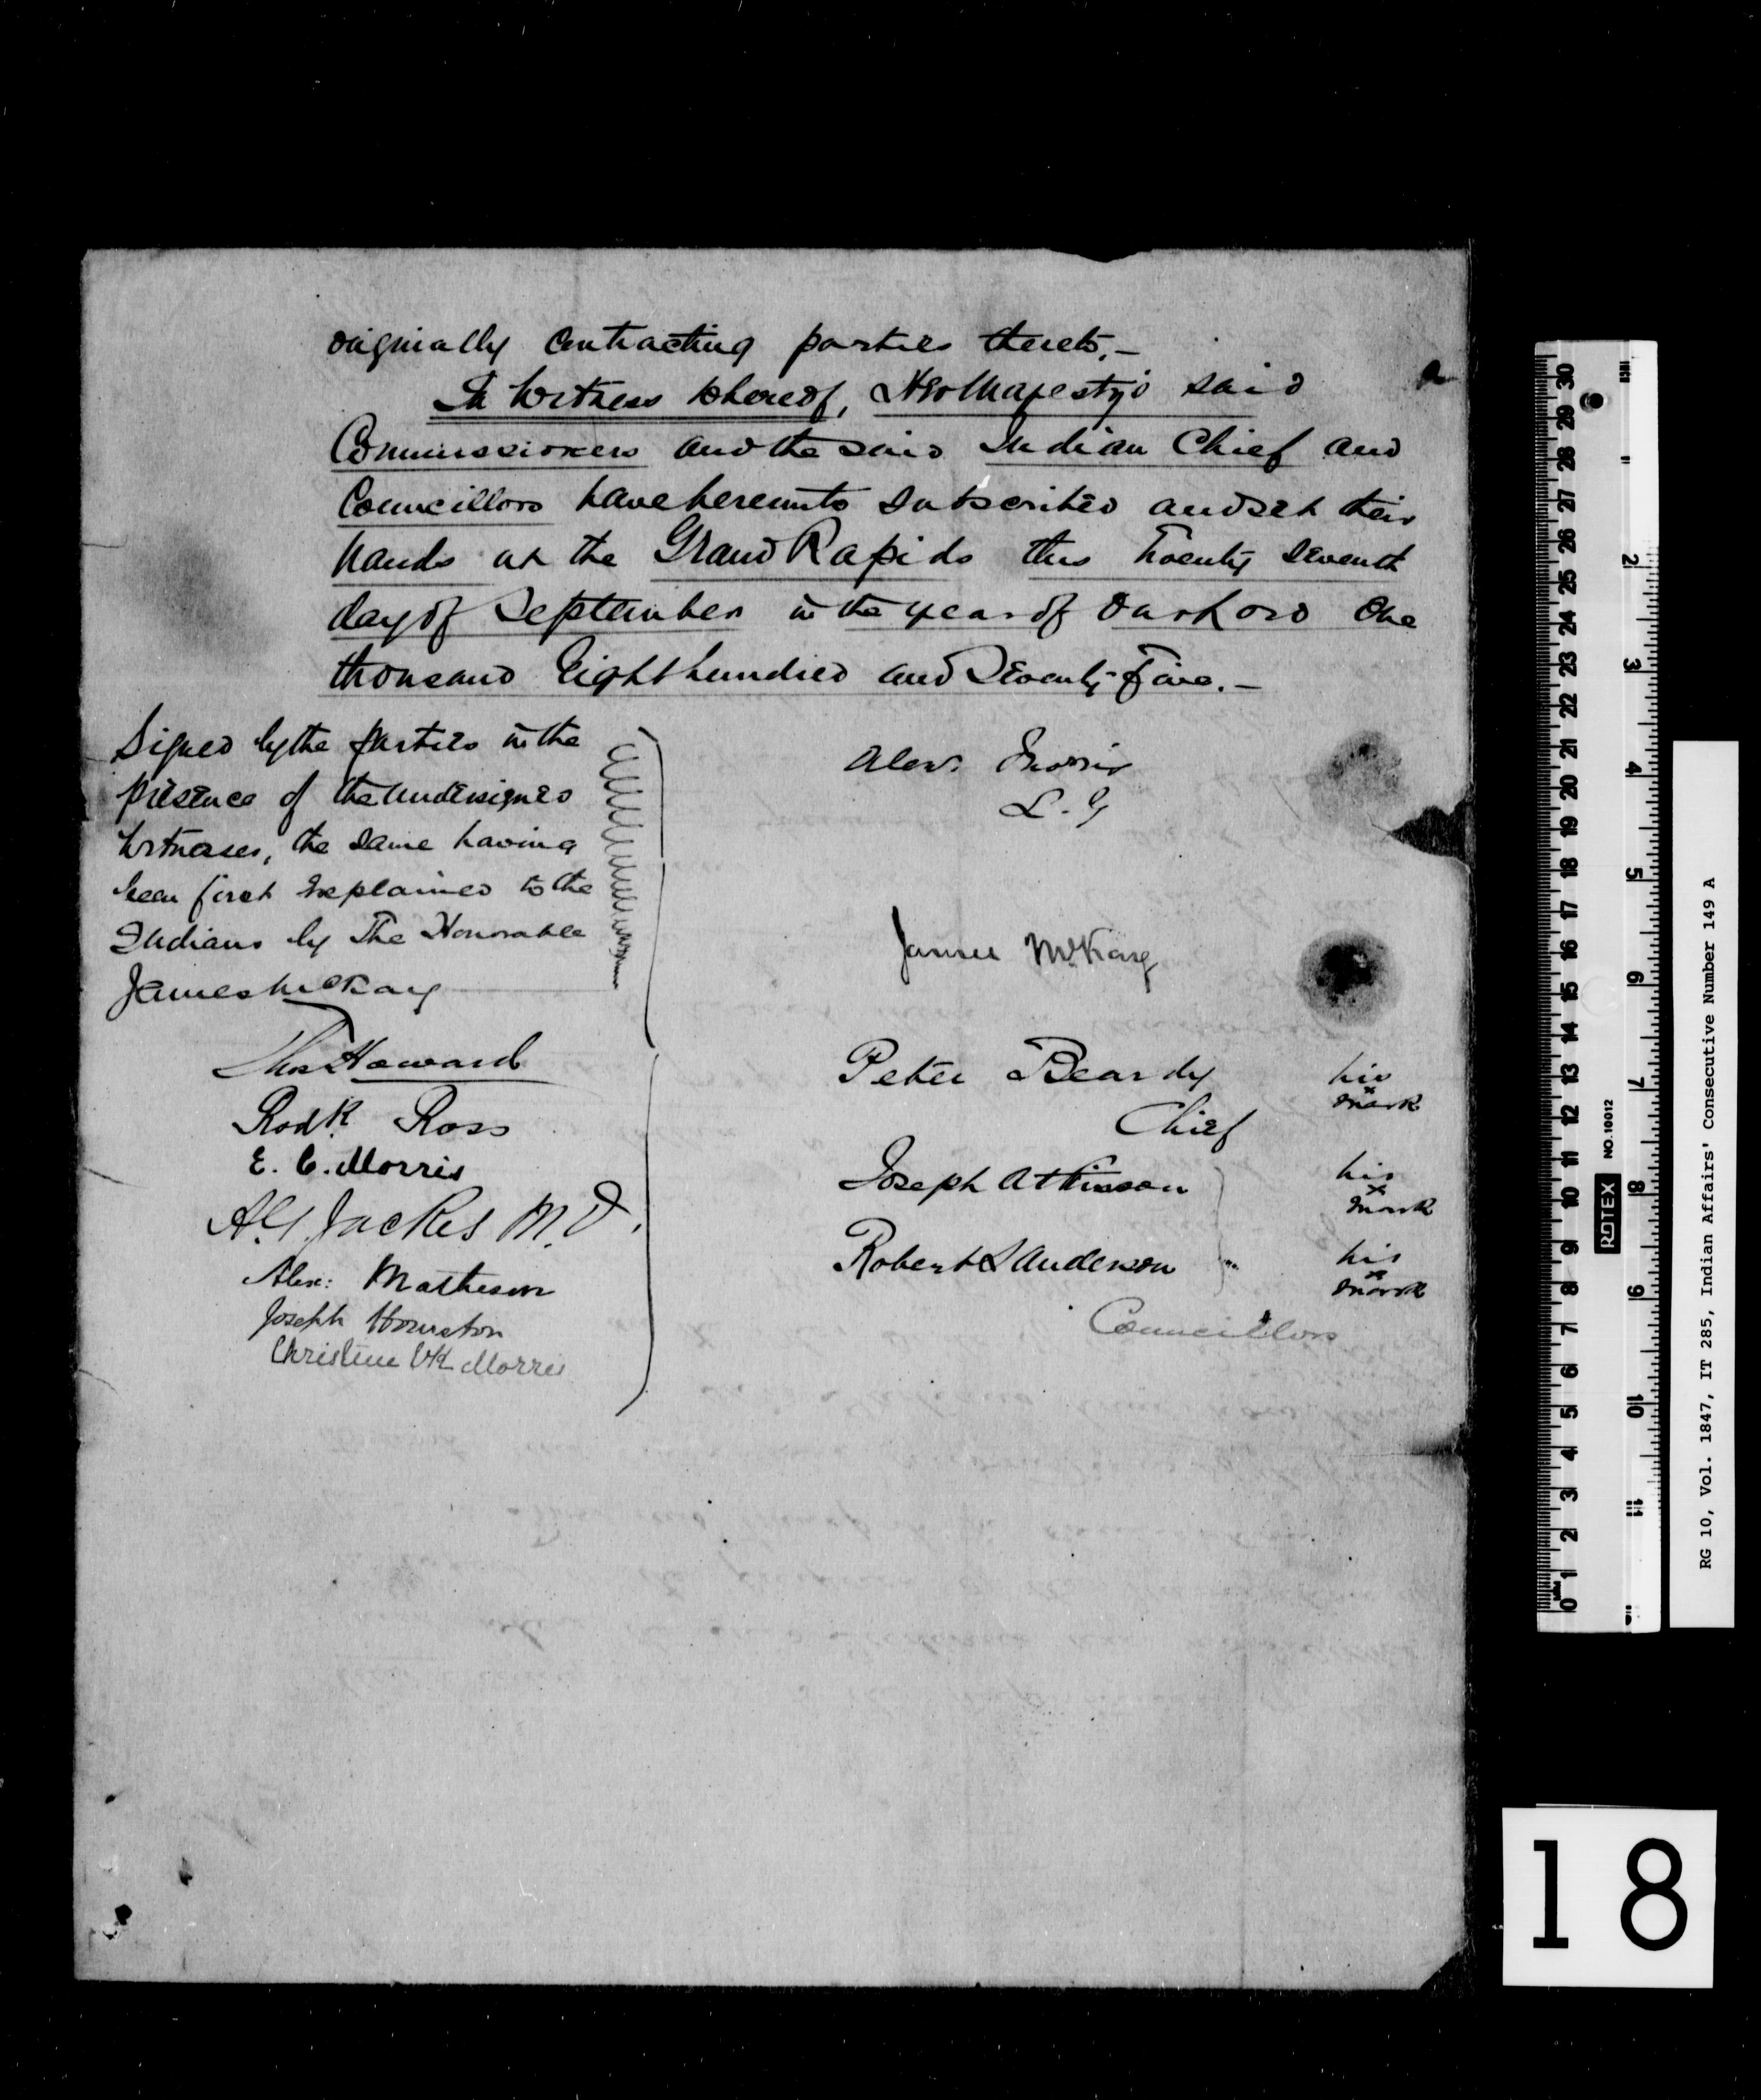 originally contracting parties thereto.—
In Witness whereof, Her Majesty's said
Commissioners and the said Indian Chief and
Councillors have hereunto subscribed and set their
hands at the Grand Rapids this Twenty Seventh
day of September in the year of Our Lord One
thousand Eight hundred and Seventy-Five.—
Signed by the parties in the
presence of the undersigned
witnesses, the same having
been first explained to the
Indians by The Honorable
James McKay
Thos Howard
Rodk. Ross
E. C. Morris
A. G. Jackes M.D.
Alex: Matheson
Joseph Houston
Christine VK Morris
Alex. Morris
L. G
James McKay
Peter Beardy his x mark
Chief
Joseph Atkinson his x mark
Robert Sanderson " his x mark
Councillors
RG 10, Vol. 1847, IT 285, Indian Affairs' Consecutive Number 149 A
ROTEX NO. 10012
0 1 2 3 4 5 6 7 8 9 10 11 12 13 14 15 16 17 18 19 20 21 22 23 24 25 26 27 28 29 30
2 3 4 5 6 7 8 9 10 11
18